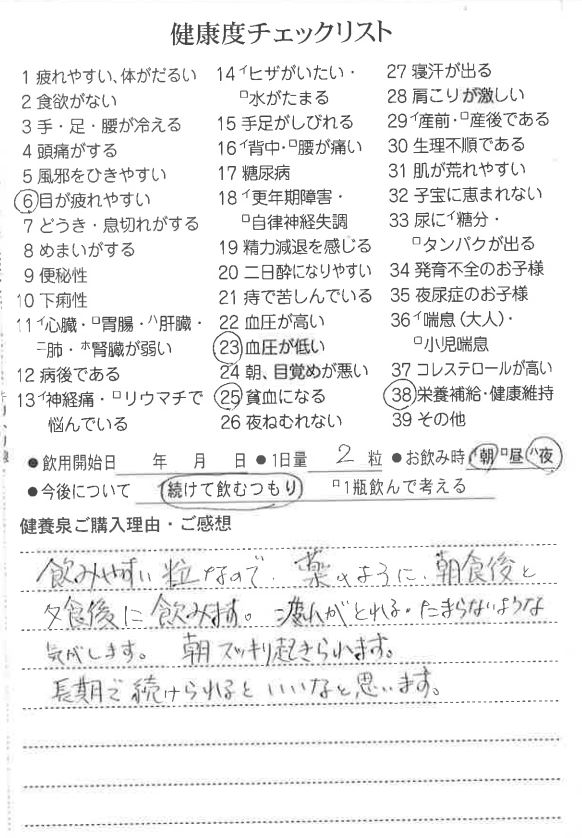 健康度チェックリスト
1 疲れやすい、体がだるい
2 食欲がない
3 手・足・腰が冷える
4 頭痛がする
5 風邪をひきやすい
6 目が疲れやすい
7 どうき・息切れがする
8 めまいがする
9 便秘性
10 下痢性
11 イ心臓・ロ胃腸・ハ肝臓・
ニ肺・ホ腎臓が弱い
12 病後である
13 イ神経痛・ロリウマチで
悩んでいる
14 イヒザがいたい・
ロ水がたまる
15 手足がしびれる
16 イ背中・ロ腰が痛い
17 糖尿病
18 イ更年期障害・
ロ自律神経失調
19 精力減退を感じる
20 二日酔になりやすい
21 痔で苦しんでいる
22 血圧が高い
23 血圧が低い
24 朝、目覚めが悪い
25 貧血になる
26 夜ねむれない
27 寝汗が出る
28 肩こりが激しい
29 イ産前・ロ産後である
30 生理不順である
31 肌が荒れやすい
32 子宝に恵まれない
33 尿にイ糖分・
ロタンパクが出る
34 発育不全のお子様
35 夜尿症のお子様
36 イ喘息（大人）・
ロ小児喘息
37 コレステロールが高い
38 栄養補給・健康維持
39 その他
●飲用開始日 年 月 日 ●1日量 2 粒 ●お飲み時 イ朝 ロ昼 ハ夜
●今後について 続けて飲むつもり ロ1瓶飲んで考える
健養泉ご購入理由・ご感想
飲みやすい粒なので、薬のように、朝食後と
夕食後に飲みます。疲れがとれる・たまらないような
気がします。 朝スッキリ起きられます。
長期で続けられるといいなと思います。